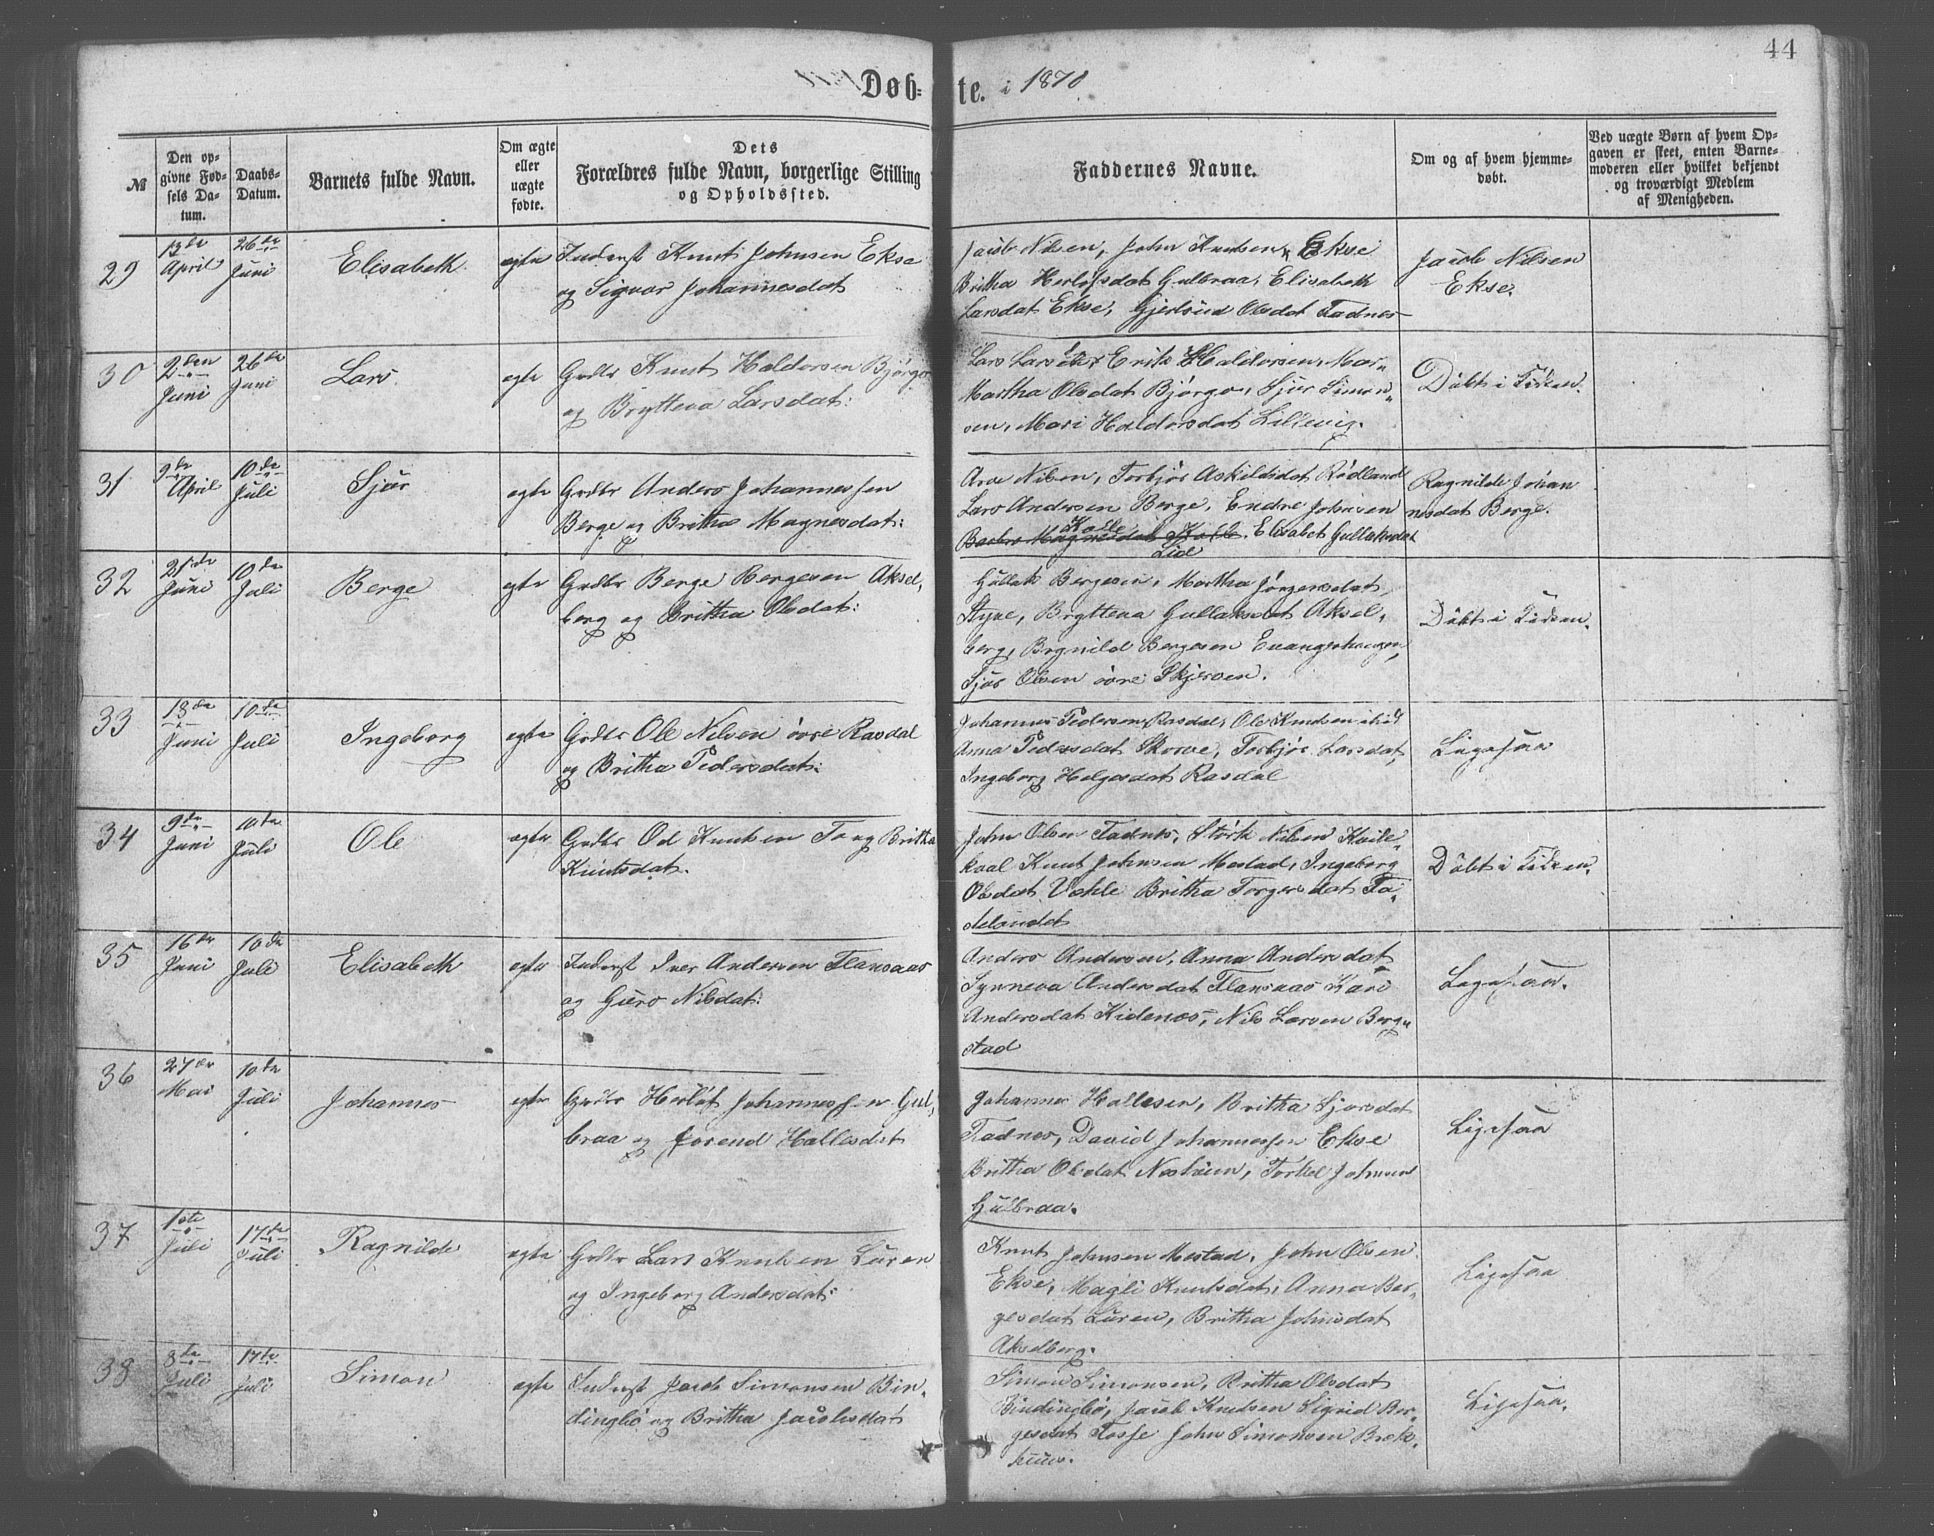 44
Døb-te. i 1870
№
Den op-
givne Fød-
sels Da-
tum.
Daabs-
Datum.
Barnets fulde Navn.
Om ægte
eller
uægte
fødte.
Dets
Forældres fulde Navn, borgerlige Stilling
og Opholdssted.
Faddernes Navne.
Om og af hvem hjemme-
døbt.
Ved uægte Børn af hvem Op-
gaven er skeet, enten Barne-
moderen eller hvilket bekjendt
og troværdigt Medlem
af Menigheden.
29
13de
April
26de
Juni
Elisabeth
egte
Inderst Knut Johnsen Ekse
og Sigvor Johannesdat
Jacob Nilsen, John Knutsen Ekse
Britha Herlofsdat Gulbraa, Elisabeth
Larsdat Ekse, Gjertrud Olsdat Fadnes
Jacob Nilsen
Ekse.
30
2den
Juni
26de
Juni
Lars
egte
Grdbr Knut Haldorsen Bjørgo
og Brytteva Larsdat:
Lars Larsen Erik Haldorsen,
Martha Olsdat Bjørgo, Sjur Simon-
sen, Mari Haldorsdat Lillevig.
Døbt i Kirken.
31
9de
April
10de
Juli
Sjur
egte
Grdbr Anders Johannessen
Berge og Britha Magnesdat:
Arve Nilsen, Torbjør Askildsdat Rødland
Lars Andersen Berge, Endre Johnsen
Kolle
Barbro Magnesdat Kolle, Elisabet Gullaksdat
Lid
Ragnilde Johan
nesdat Berge.
32
21de
Juni
10de
Juli
Berge
egte
Grdbr Berge Bergesen Aksel,
berg og Britha Olsdat:
Gullak Bergesen, Martha Jørgensdat
Styve, Brytteva Gullaksdat Aksel-
berg, Brynild Bergesen Evangerhaugen,
Sjur Olsen øvre Skjerven.
Døbt i Kirken.
33
13de
Juni
10de
Juli
Ingeborg
egte
Grdbr Ole Nilsen øvre Rasdal
og Britha Pedersdat:
Johannes Pedersen Rasdal, Ole Knudsen ibid
Anna Pedersdat Skorve, Torbjør Larsdat,
Ingeborg Helgesdat Rasdal
Ligesaa
34
9de
Juni
10de
Juli
Ole
egte
Grdbr Od Knutsen Fa og Britha
Knutsdat.
John Olsen Fadnes, Størk Nilsen Kvile-
kval Knut Johnsen Mestad, Ingeborg
Olsdat Væhle Britha Torgersdat Fa-
delandet
Døbt i Kirken.
35
16de
Juni
10de
Juli
Elisabeth
egte
Inderst Iver Andersen Flansaas
og Guro Nilsdat:
Anders Andersen, Anna Andersdat
Synneva Andersdat Flansaas Kari
Andersdat Kidenes, Nils Larsen Berg-
stad
Ligesaa.
36
27de
Mai
10de
Juli
Johannes
egte
Grdbr Herlof Johannessen Gul,
braa og Jorend Hallesdat
Johannes Hallesen, Britha Sjursdat
Fadnes, David Johannessen Ekse
Britha Olsdat Nesheim, Torkel Johnsen
Gulbraa.
Ligesaa
37
1ste
Juli
17de
Juli
Ragnilde
egte
Grdbr Lars Knutsen Luren
og Ingeborg Andersdat:
Knut Johnsen Mestad, John Olsen
Ekse, Magli Knutsdat, Anna Ber-
gesdat Luren, Britha Johnsdat
Akselberg.
Ligesaa
38
8de
Juli
17de
Juli
Simon
egte
Inderst Jacob Simonsen Bin-
dingbø og Britha Jacobsdat
Simon Simonsen, Britha Olsdat
Bindingbø, Jacob Knutsen Sigrid Ber-
gesdat Fosse John Simonsen Brek-
huus.
Ligesaa.